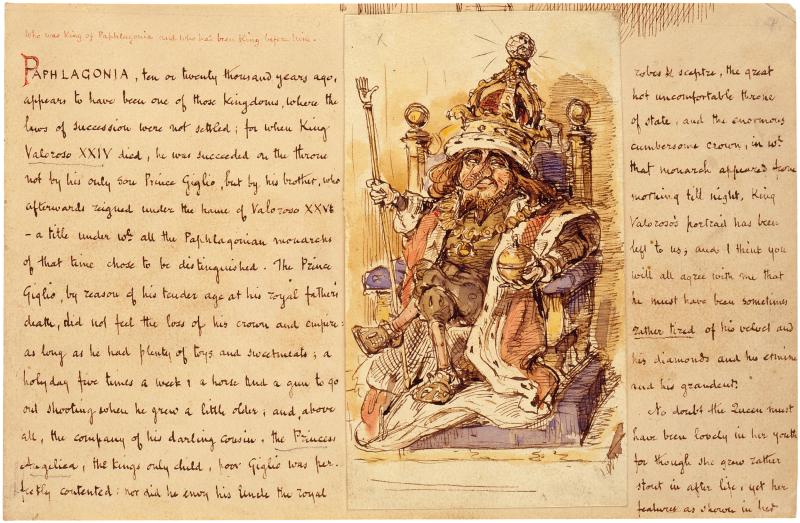 Who was King of Paphlagonia and who has been King before him.
PAPHLAGONIA, ten or twenty thousand years ago,
appears to have been one of those Kingdoms, where the
laws of succession were not settled; for when King
Valoroso XXIV died, he was succeeded on the throne
not by his only Son Prince Giglio, but by his brother, who
afterwards reigned under the name of Valoroso XXVI
- a title under wh all the Paphlagonian monarchs
of that time chose to be distinguished. The Prince
Giglio, by reason of his tender age at his royal father's
death, did not feel the loss of his crown and empire:
as long as he had plenty of toys and sweetmeats; a
holyday five times a week & a horse and a gun to go
out shooting when he grew a little older; and above
all, the company of his darling cousin, the Princess
Angelica, the Kings only child, poor Giglio was per-
fectly contented: nor did he envy his Uncle the royal
robes & sceptre, the great
hot uncomfortable throne
of state, and the enormous
cumbersome crown, in wh
that monarch appeared from
morning till night, King
Valoroso's portrait has been
left to us; and I think you
will all agree with me that
he must have been sometimes
rather tired of his velvet and
his diamonds and his ermine
and his grandeur.
No doubt the Queen must
have been lovely in her youth
for though she grew rather
stout in after life, yet her
features as shown in her